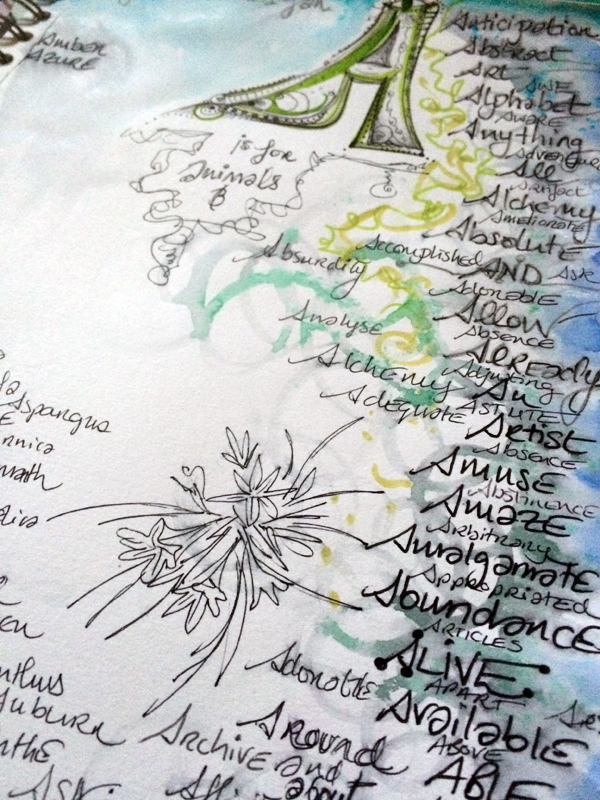 Amber
Azure
A
is for
Animals
&
Anticipation
Abstract
Art
AWE
Alphabet
AWARE
Anything
Adventure
All
Artifact
Alchemy
Ameliorate
Absolute
Accomplished
AND
Ask
Absurdity
Adorable
Allow
Absence
Analyse
Already
Adjusting
Alchemy
An
Adequate
ASTUTE
Artist
Absence
Amuse
Abstinence
Amaze
Arbitrary
Amalgamate
Appropriated
Abundance
ARTICLES
ALIVE
Adorable
APART
Available
Around
ABOVE
Archive and
ABLE
about
Asparagus
Auburn